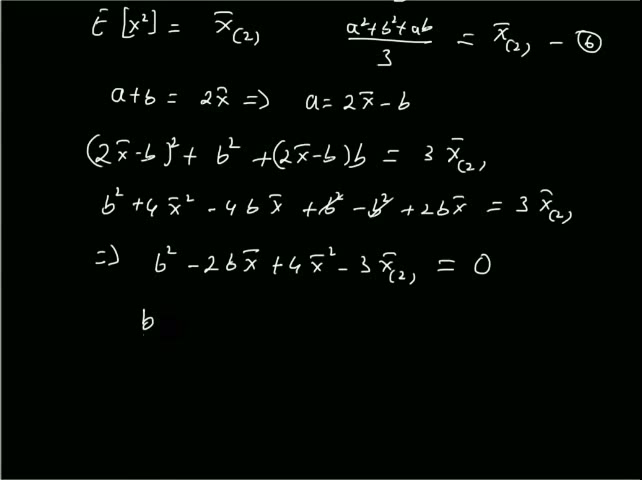 E [x²] = x̄₍₂₎ (a²+b²+ab)/3 = x̄₍₂₎ — ⑥
a+b = 2x̄ => a = 2x̄ - b
(2x̄-b)² + b² + (2x̄-b)b = 3 x̄₍₂₎
b² + 4x̄² - 4bx̄ + b² - b² + 2bx̄ = 3 x̄₍₂₎
=> b² - 2bx̄ + 4x̄² - 3x̄₍₂₎ = 0
b